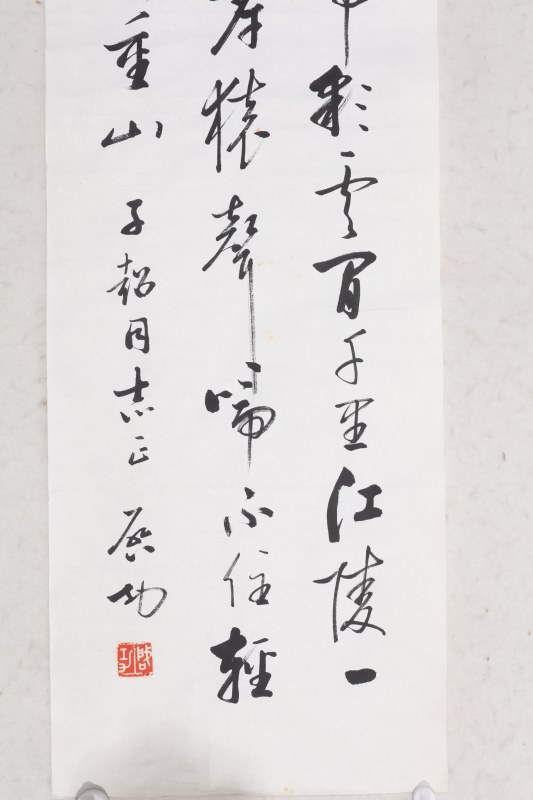 彩雲間千里江陵一
岸猿聲啼不住輕
重山 子超同志正 啟功
啟功